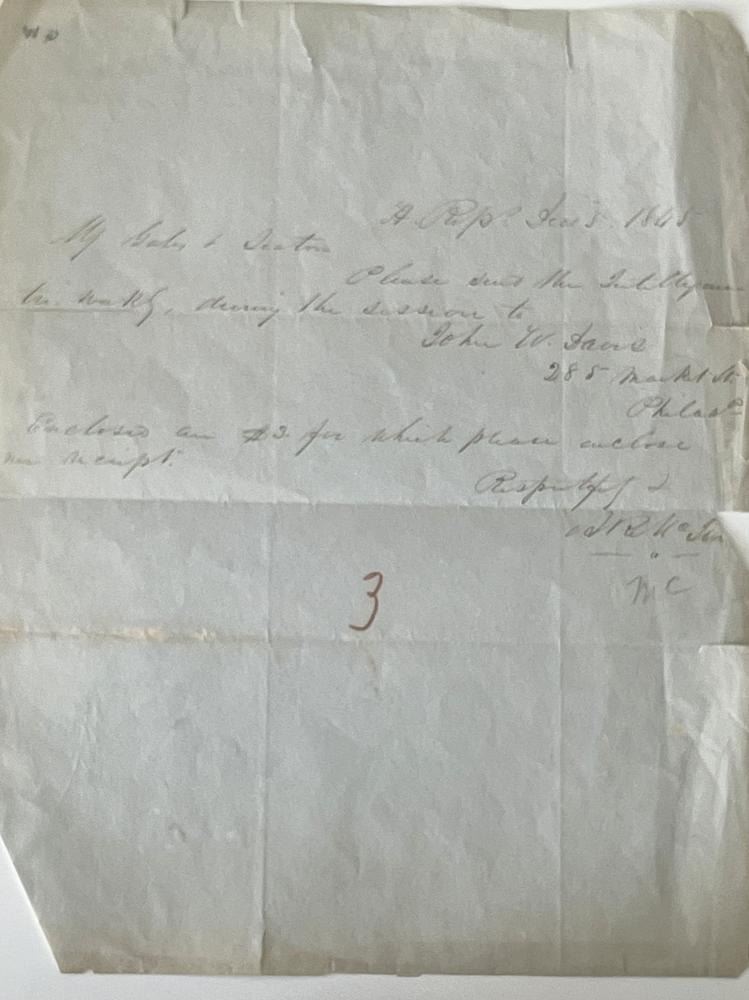 H. Reps. Dec 5. 1845
Gales & Seaton
Please send the Intelligencer
tri. weekly, during the session to
John W. Davis
285 Market St.
Philada
Enclosed are $3 for which please enclose
me receipt.
Respectfully
Mc
MC
3